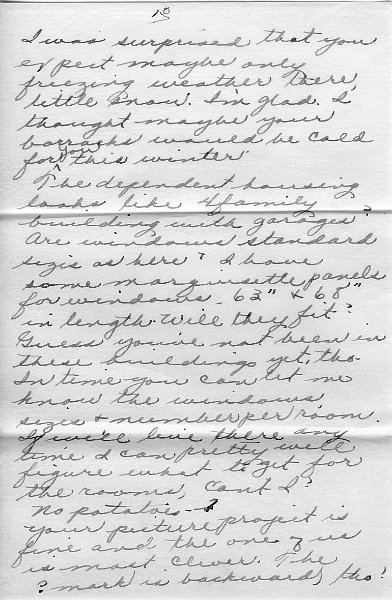 10
I was surprised that you
expect maybe only
freezing weather there,
little snow. I'm glad. I
thought maybe your
barracks would be cold
for you this winter.
The dependent housing
looks like 4 family
building with garages?
Are windows standard
sizes as here? I have
some marquisette panels
for windows - 63" & 68"
in length. Will they fit?
Guess you've not been in
these buildings yet, tho.
In time you can let me
know the windows
sizes & number per room.
If we'll live there any
time I can pretty well
figure what to get for
the rooms, Can't I?
No potatoes - ?
Your picture project is
fine and the one of us
is most clever. The
? mark is backwards, tho!